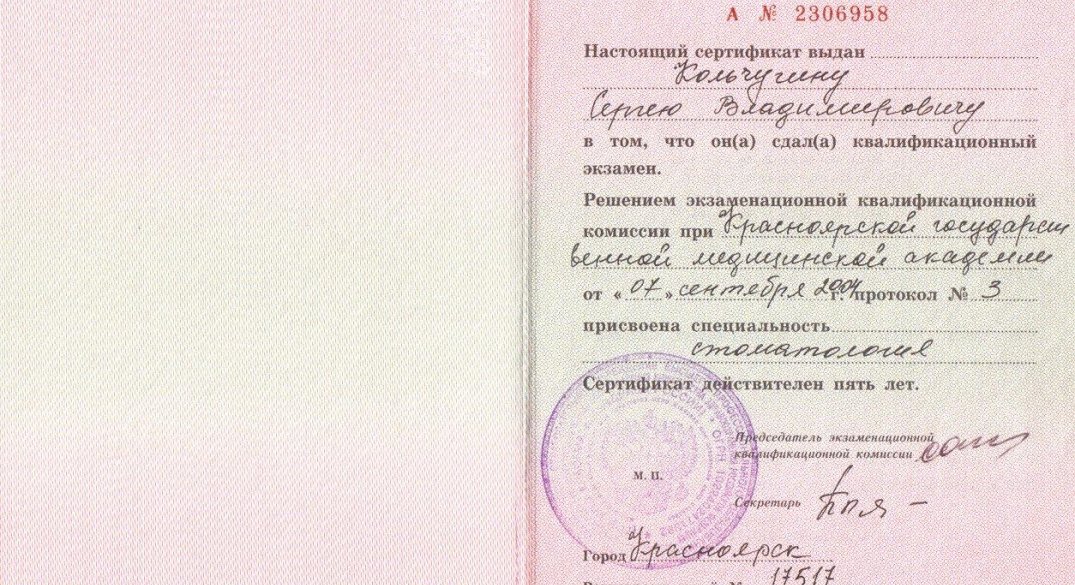 А № 2306958
Настоящий сертификат выдан
Кольчугину
Сергею Владимировичу
в том, что он(а) сдал(а) квалификационный
экзамен.
Решением экзаменационной квалификационной
комиссии при Красноярской государст
венной медицинской академии
от «07» сентября 2004 г. протокол № 3
присвоена специальность
стоматология
Сертификат действителен пять лет.
Председатель экзаменационной
квалификационной комиссии
М. П.
Секретарь
Город Красноярск
№ 17517